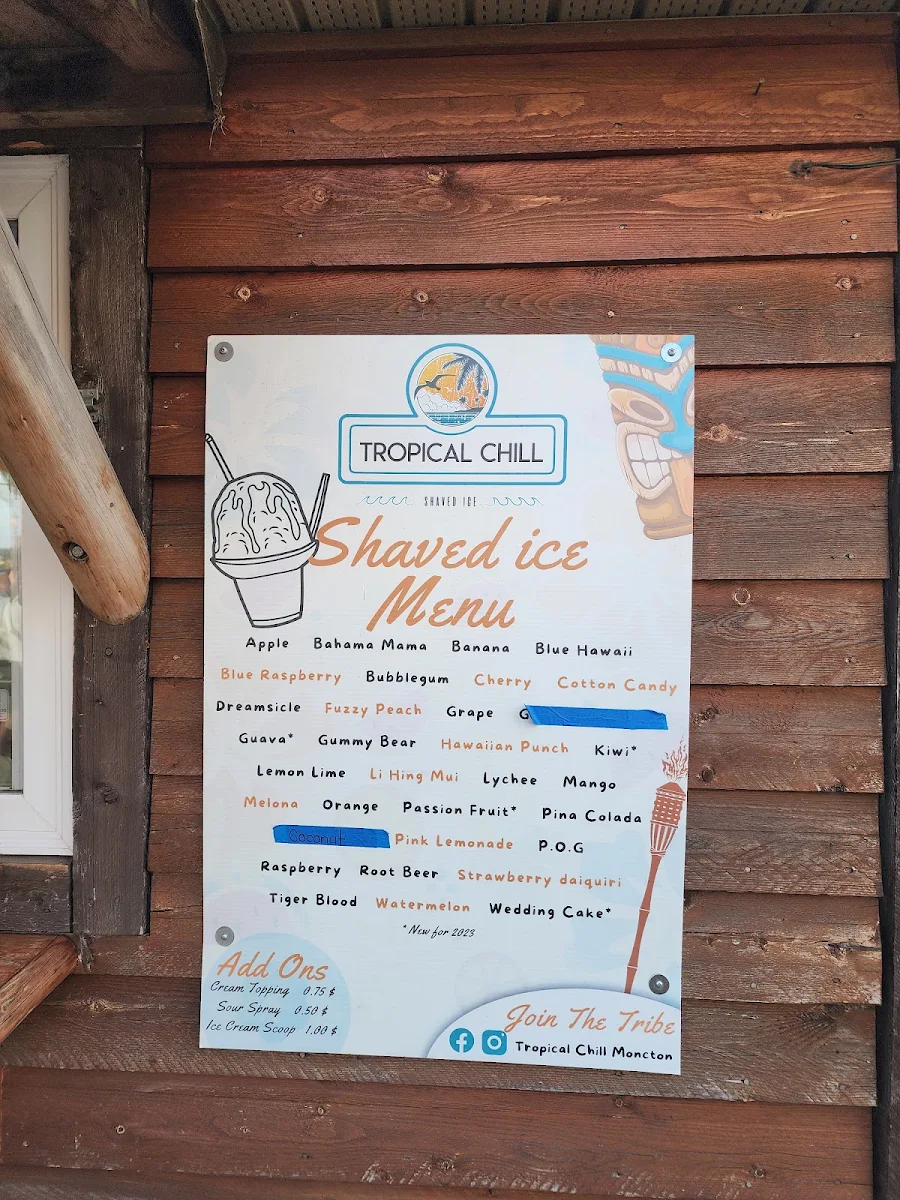 TROPICAL CHILL
SHAVED ICE
Shaved ice
Menu
Apple Bahama Mama Banana Blue Hawaii
Blue Raspberry Bubblegum Cherry Cotton Candy
Dreamsicle Fuzzy Peach Grape
Guava* Gummy Bear Hawaiian Punch Kiwi*
Lemon Lime Li Hing Mui Lychee Mango
Melona Orange Passion Fruit* Pina Colada
Coconut Pink Lemonade P.O.G
Raspberry Root Beer Strawberry daiquiri
Tiger Blood Watermelon Wedding Cake*
* New for 2023
Add Ons
Cream Topping 0.75 $
Sour Spray 0.50 $
Ice Cream Scoop 1.00 $
Join The Tribe
Tropical Chill Moncton